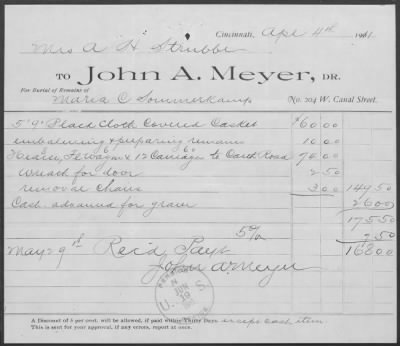 Cincinnati, Apr 4th 1911.
Mrs A H Strubbe
TO John A. Meyer, DR.
For Burial of Remains of
Maria C Sommerkamp No. 204 W. Canal Street.
5'9" Black Cloth Covered Casket $60.00
embalming & preparing remains 10.00
Hearse, & 12 Carriage to 74.00
Wreath for door 2.50
removal chairs 3.00 149.50
Cash advanced for grave 26.00
175.50
5% 7.50
May 29th Rec'd Payt 168.00
John A. Meyer
U. S.
A Discount of 5 per cent. will be allowed, if paid within Thirty Days except cash item
This is sent for your approval, if any errors, report at once.